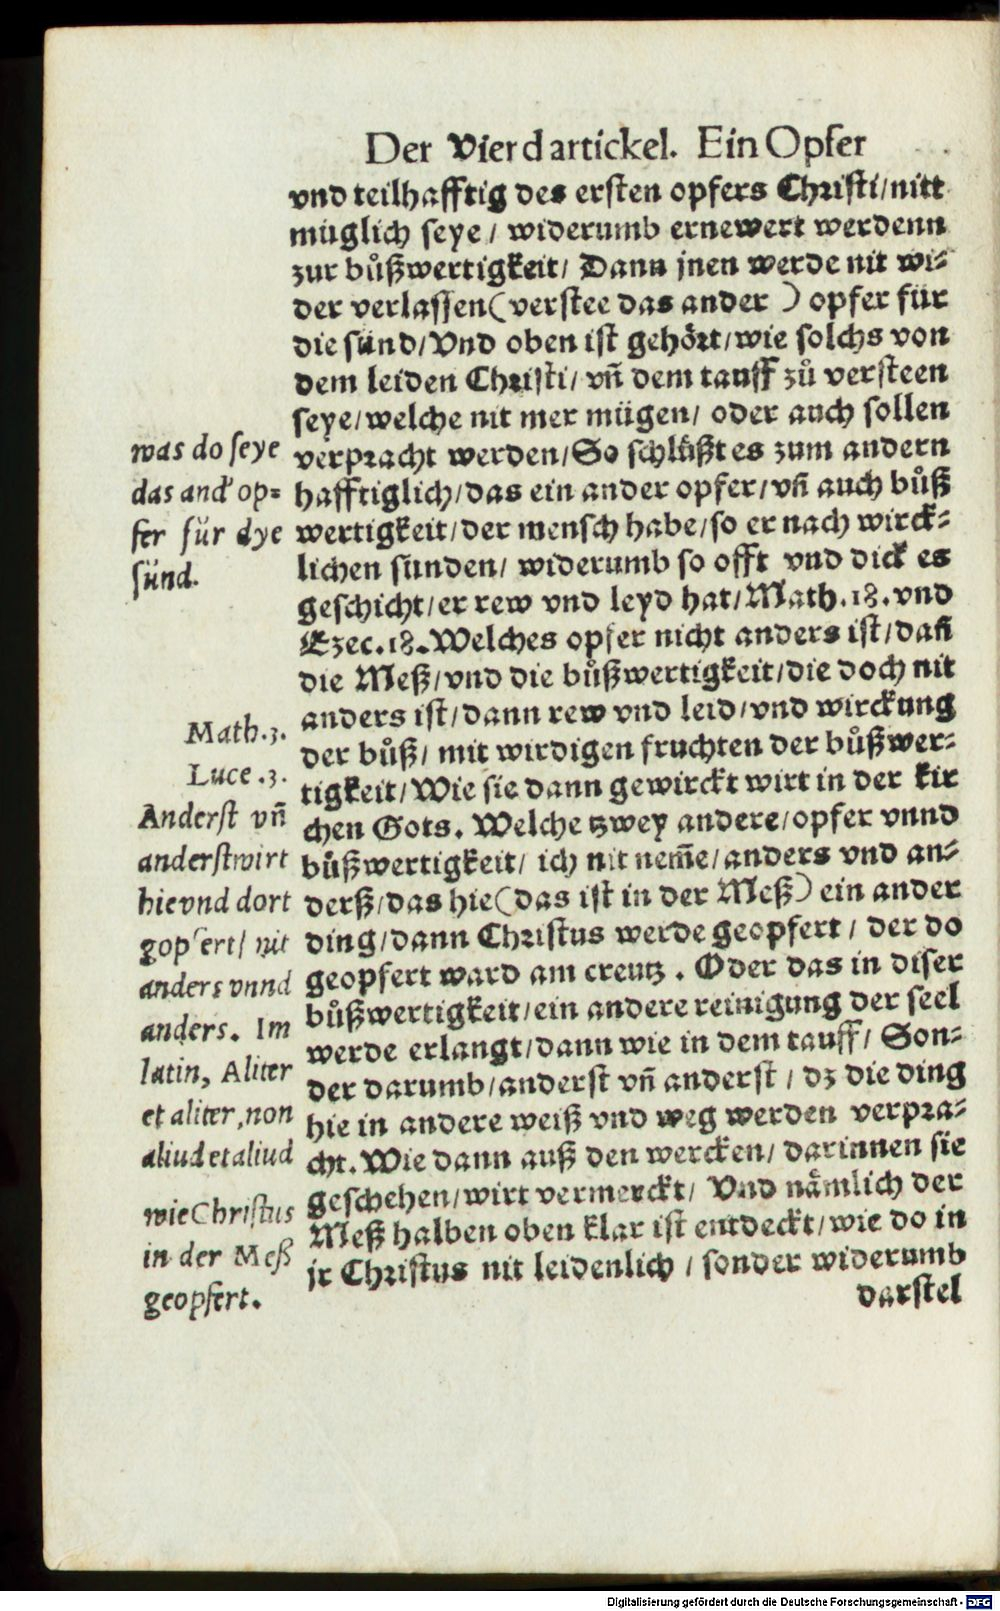 Der Vierd artickel. Ein Opfer
vnd teilhafftig des ersten opfers Christi/nitt
müglich seye/ widerumb ernewert werdenn
zur bůßwertigkeit/ Dann jnen werde nit wi⸗
der verlassen(verstee das ander ) opfer für
die sünd/Vnd oben ist gehört/wie solchs von
dem leiden Christi/ vñ dem tauff zů versteen
seye/welche nit mer mügen/ oder auch sollen
verpracht werden/So schlůßt es zum andern
hafftiglich/das ein ander opfer/vñ auch bůß
wertigkeit/der mensch habe/so er nach wirck⸗
lichen sünden/ widerumb so offt vnd dick es
geschicht/er rew vnd leyd hat/Math.18.vnd
Ezec.18.Welches opfer nicht anders ist/dañ
die Meß/vnd die bůßwertigkeit/die doch nit
anders ist/dann rew vnd leid/vnd wirckung
der bůß/ mit wirdigen fruchten der bůßwer⸗
tigkeit/Wie sie dann gewirckt wirt in der kir
chen Gots. Welche tzwey andere/opfer vnnd
bůßwertigkeit/ ich nit nem̃e/anders vnd an⸗
derß/das hie(das ist in der Meß) ein ander
ding/dann Christus werde geopfert/ der do
geopfert ward am creutz . Oder das in diser
bůßwertigkeit/ein andere reinigung der seel
werde erlangt/dann wie in dem tauff/ Son⸗
der darumb/anderst vñ anderst / dz die ding
hie in andere weiß vnd weg werden verpra⸗
cht. Wie dann auß den wercken/ darinnen sie
geschehen/wirt vermerckt/ Vnd nämlich der
Meß halben oben klar ist entdeckt/wie do in
jr Christus nit leidenlich / sonder widerumb
darstel
was do seye
das and' op⸗
fer für dye
sünd.
Math.3.
Luce.3.
Anderst vñ
anderst wirt
hie vnd dort
gop'ert/ nit
anders vnnd
anders. Im
latin, Aliter
et aliter, non
aliud et aliud
wie Christus
in der Meß
geopfert.
Digitalisierung gefördert durch die Deutsche Forschungsgemeinschaft - DFG